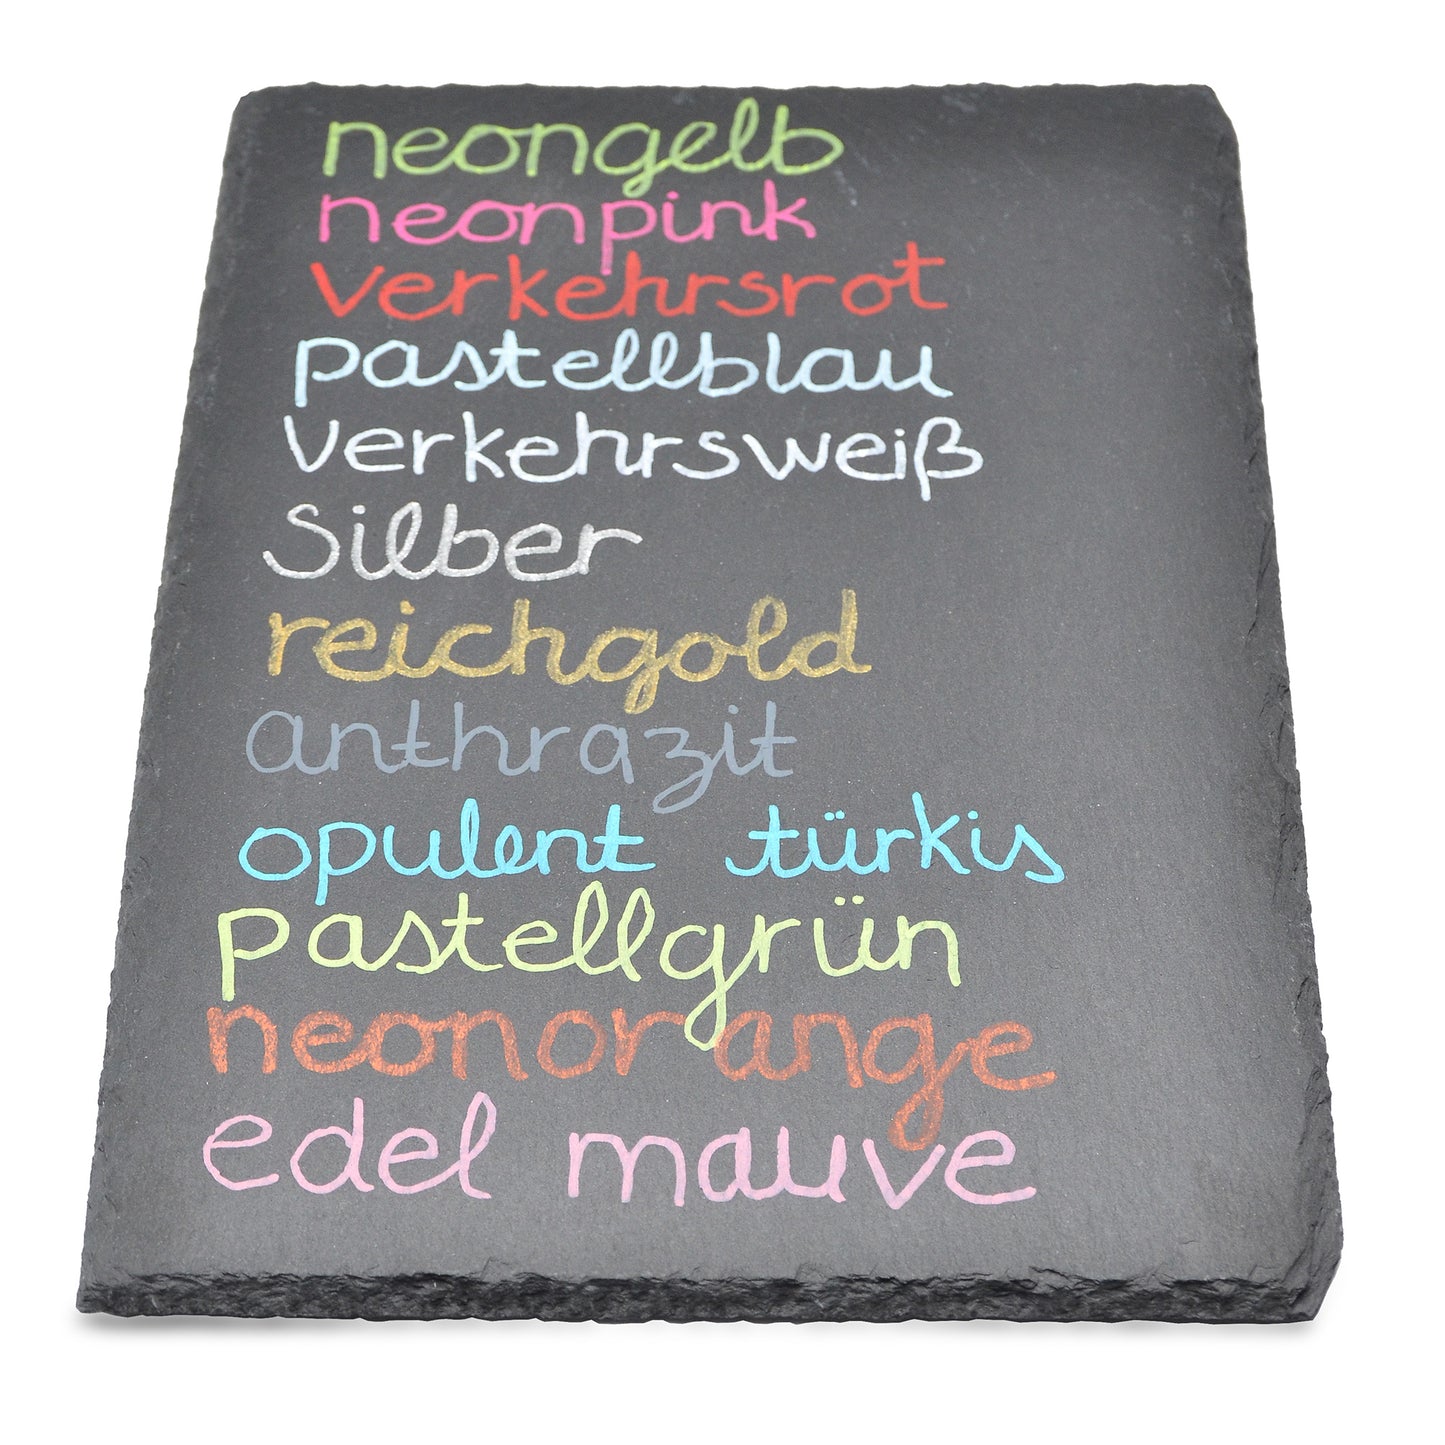 neongelb
neonpink
verkehrsrot
pastellblau
verkehrsweiß
Silber
reichgold
anthrazit
opulent türkis
pastellgrün
neonorange
edel mauve